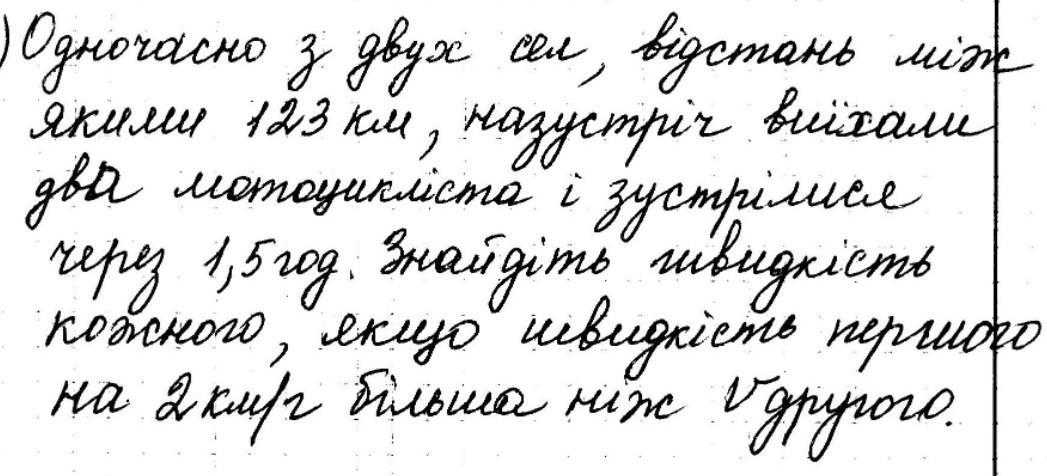 ) Одночасно з двух сел, відстань між
якими 123 км, назустріч виїхали
два мотоцикліста і зустрілися
через 1,5 год. Знайдіть швидкість
кожного, якщо швидкість першого
на 2 км/г більша ніж V другого.